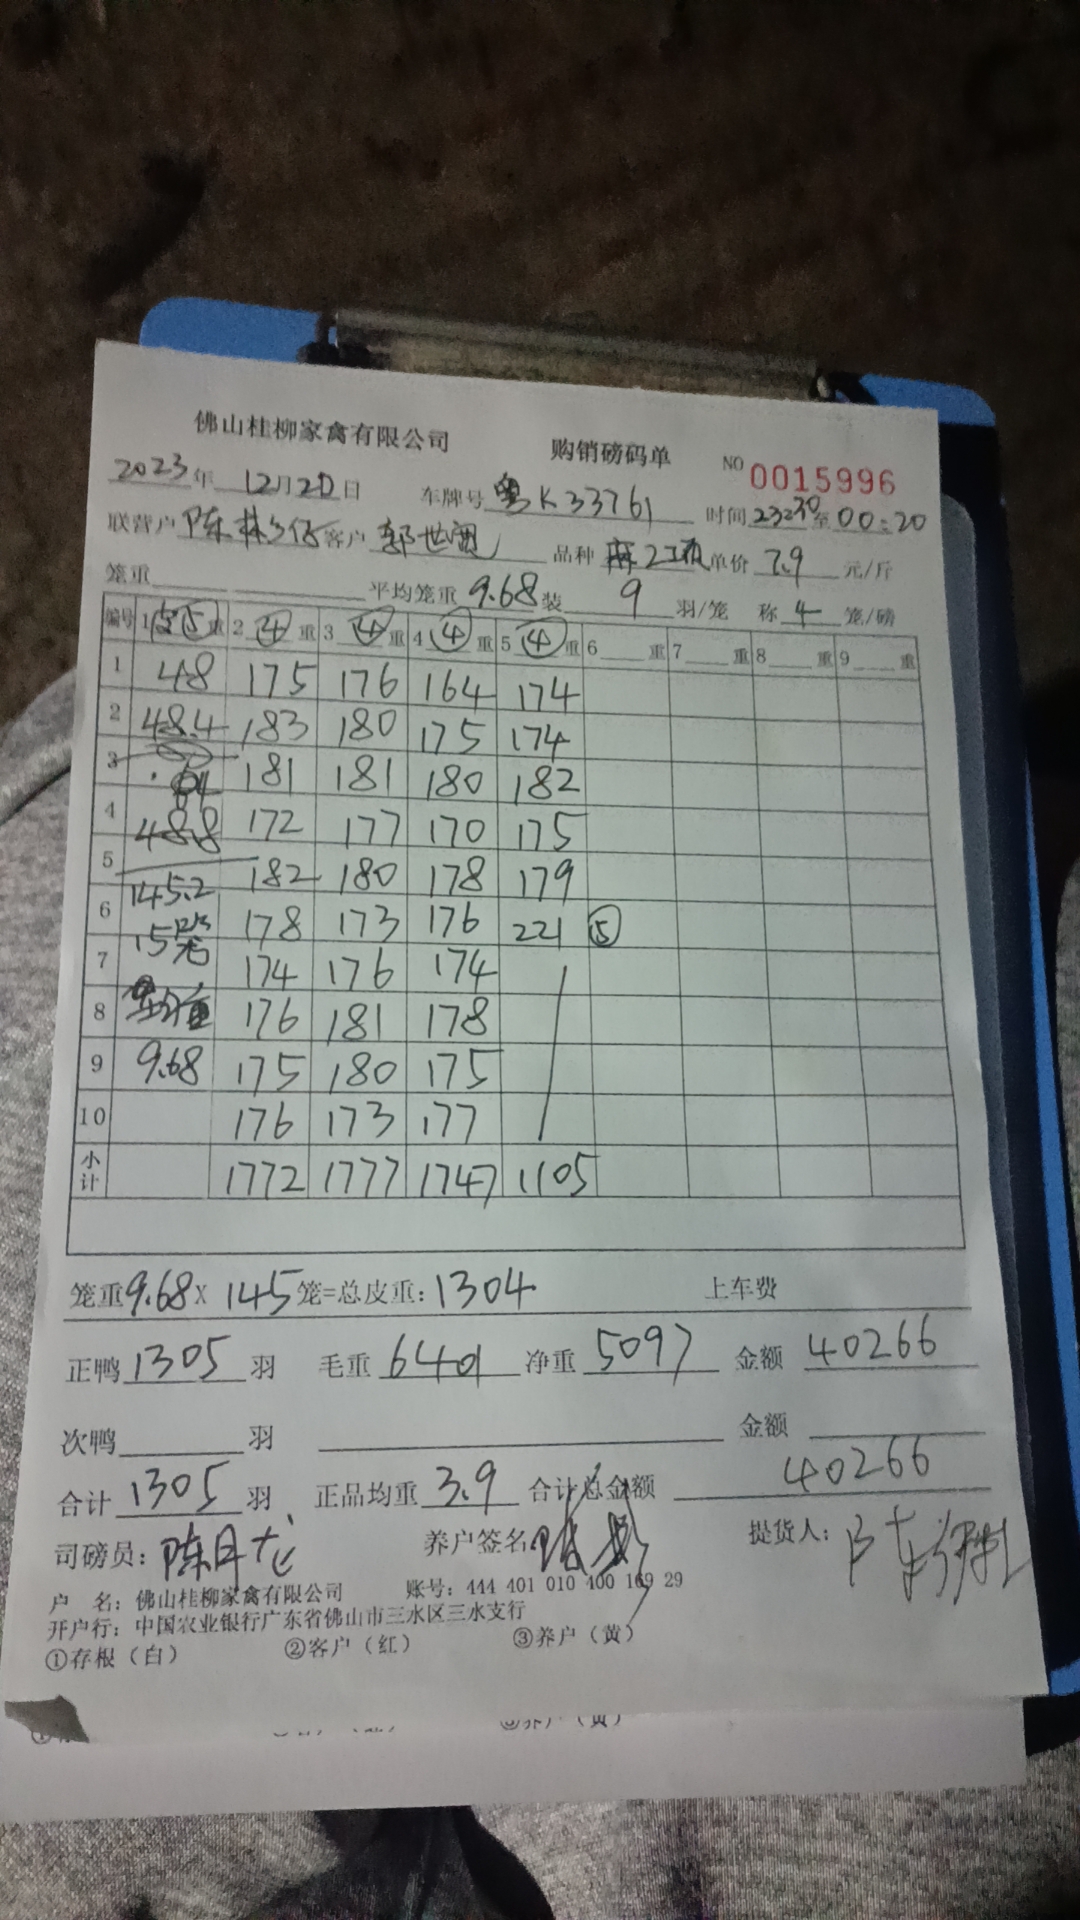 佛山桂柳家禽有限公司 购销磅码单 NO 0015996
2023年 12月20日 车牌号 粤K33761 时间 23:30至00:20
联营户 陈林 客户 郭世 品种 麻 单价 7.9 元/斤
笼重 平均笼重 9.68 装 9 羽/笼 称 4 笼/磅
编号 1 空⑤ 重 2 ④ 重 3 ④ 重 4 ④ 重 5 ④ 重 6 重 7 重 8 重 9 重
1 48 175 176 164 174
2 48.4 183 180 175 174
3 181 181 180 182
4 48.8 172 177 170 175
5 182 180 178 179
6 145.2 178 173 176 221 ⑤
7 15笼 174 176 174
8 均重 176 181 178
9 9.68 175 180 175
10 176 173 177
小计 1772 1777 1747 1105
笼重 9.68 X 145 笼=总皮重: 1304 上车费
正鸭 1305 羽 毛重 6401 净重 5097 金额 40266
次鸭 羽 金额
合计 1305 羽 正品均重 3.9 合计总金额 40266
司磅员: 陈月龙 养户签名 提货人:
户 名: 佛山桂柳家禽有限公司 账号: 444 401 010 400 169 29
开户行: 中国农业银行广东省佛山市三水区三水支行
①存根(白) ②客户(红) ③养户(黄)